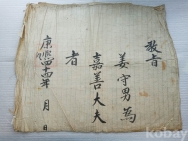 敎旨
姜守男為
嘉善大夫
者
康熙四十四年 月 日
kobay